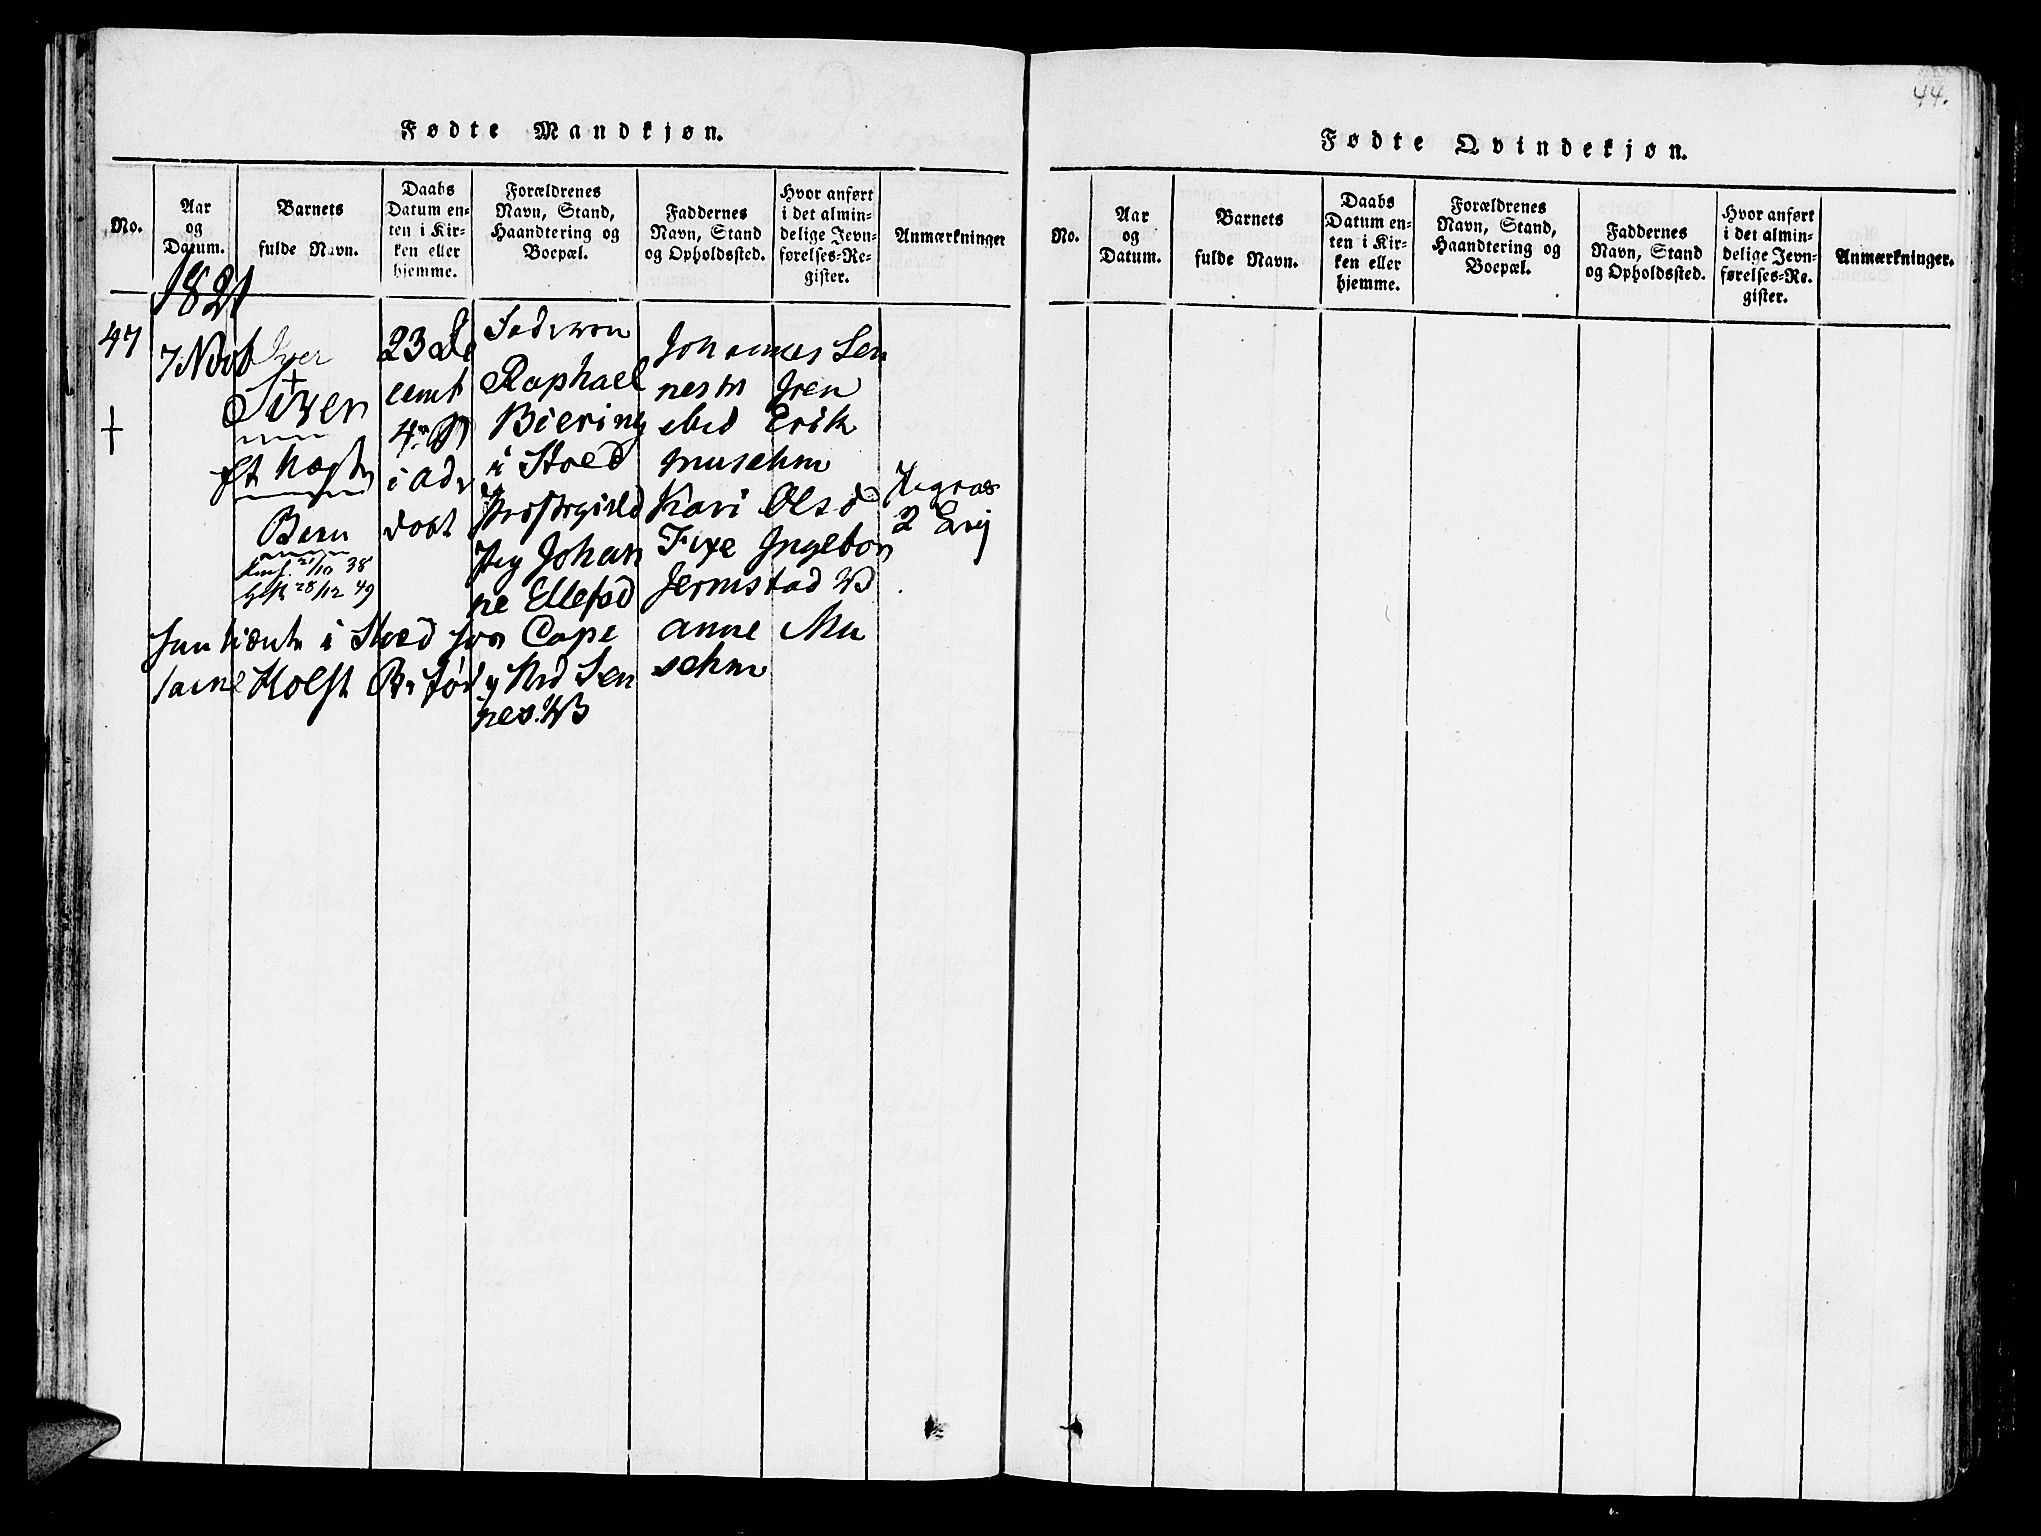 44.
Fødte Mandkjøn.
No.
Aar
og
Datum.
Barnets
fulde Navn.
Daabs
Datum en-
ten i Kir-
ken eller
hjemme.
Forældrenes
Navn, Stand,
Haandtering og
Boepæl.
Faddernes
Navn, Stand
og Opholdssted.
Hvor anført
i det almin-
delige Jevn-
førelses-Re-
gister.
Anmærkninger
1821
47
7 Novb
Iver
Siver
ft
Bern
28/12 49
23 De
cemb
4
i Ad
dobt
Raphael
Biering
i Stoed
Præstegield
Pig Johan
ne Ellefsd
Johannes Sen
nesm Iven
sbed Erik
musehm
Kari Olsd
Fixe Ingebor
Jermstad
anne Mu
sehm
i Stoed Cape
Holst
Sen
nes.
2
Fødte Qvindekjøn.
No.
Aar
og
Datum.
Barnets
fulde Navn.
Daabs
Datum en-
ten i Kir-
ken eller
hjemme.
Forældrenes
Navn, Stand,
Haandtering og
Boepæl.
Faddernes
Navn, Stand
og Opholdssted.
Hvor anført
i det almin-
delige Jevn-
førelses-Re-
gister.
Anmærkninger.